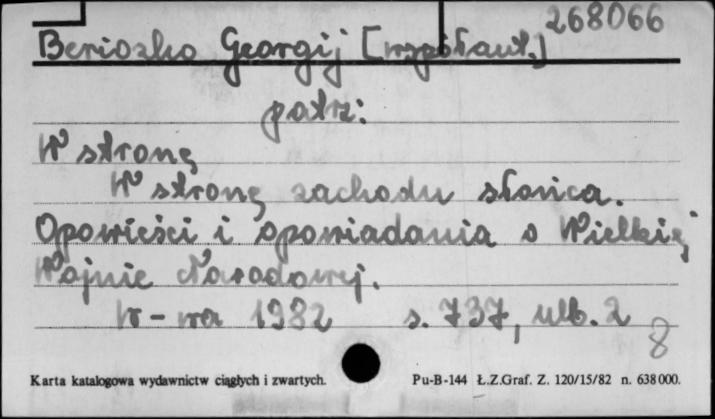 268066
Beriozko Georgij [współaut.]
patrz:
W stronę
W stronę zachodu słońca.
Opowieści i opowiadania o Wielkiej
Wojnie Narodowej.
W-wa 1982 s. 737, nlb. 2
8
Karta katalogowa wydawnictw ciągłych i zwartych. Pu-B-144 Ł.Z.Graf. Z. 120/15/82 n. 638 000.